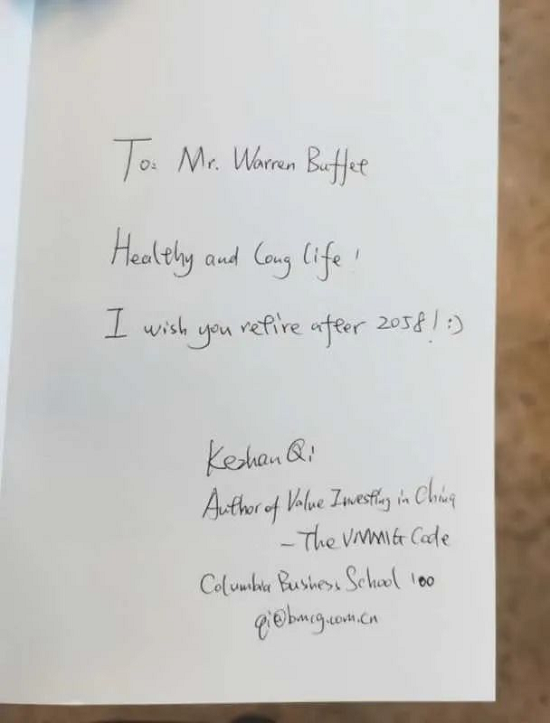 To: Mr. Warren Buffet
Healthy and Long life!
I wish you retire after 2058! :)
Keshan Qi
Author of Value Investing in China
- The VMMIG Code
Columbia Business School '00
qi@bmcg.com.cn